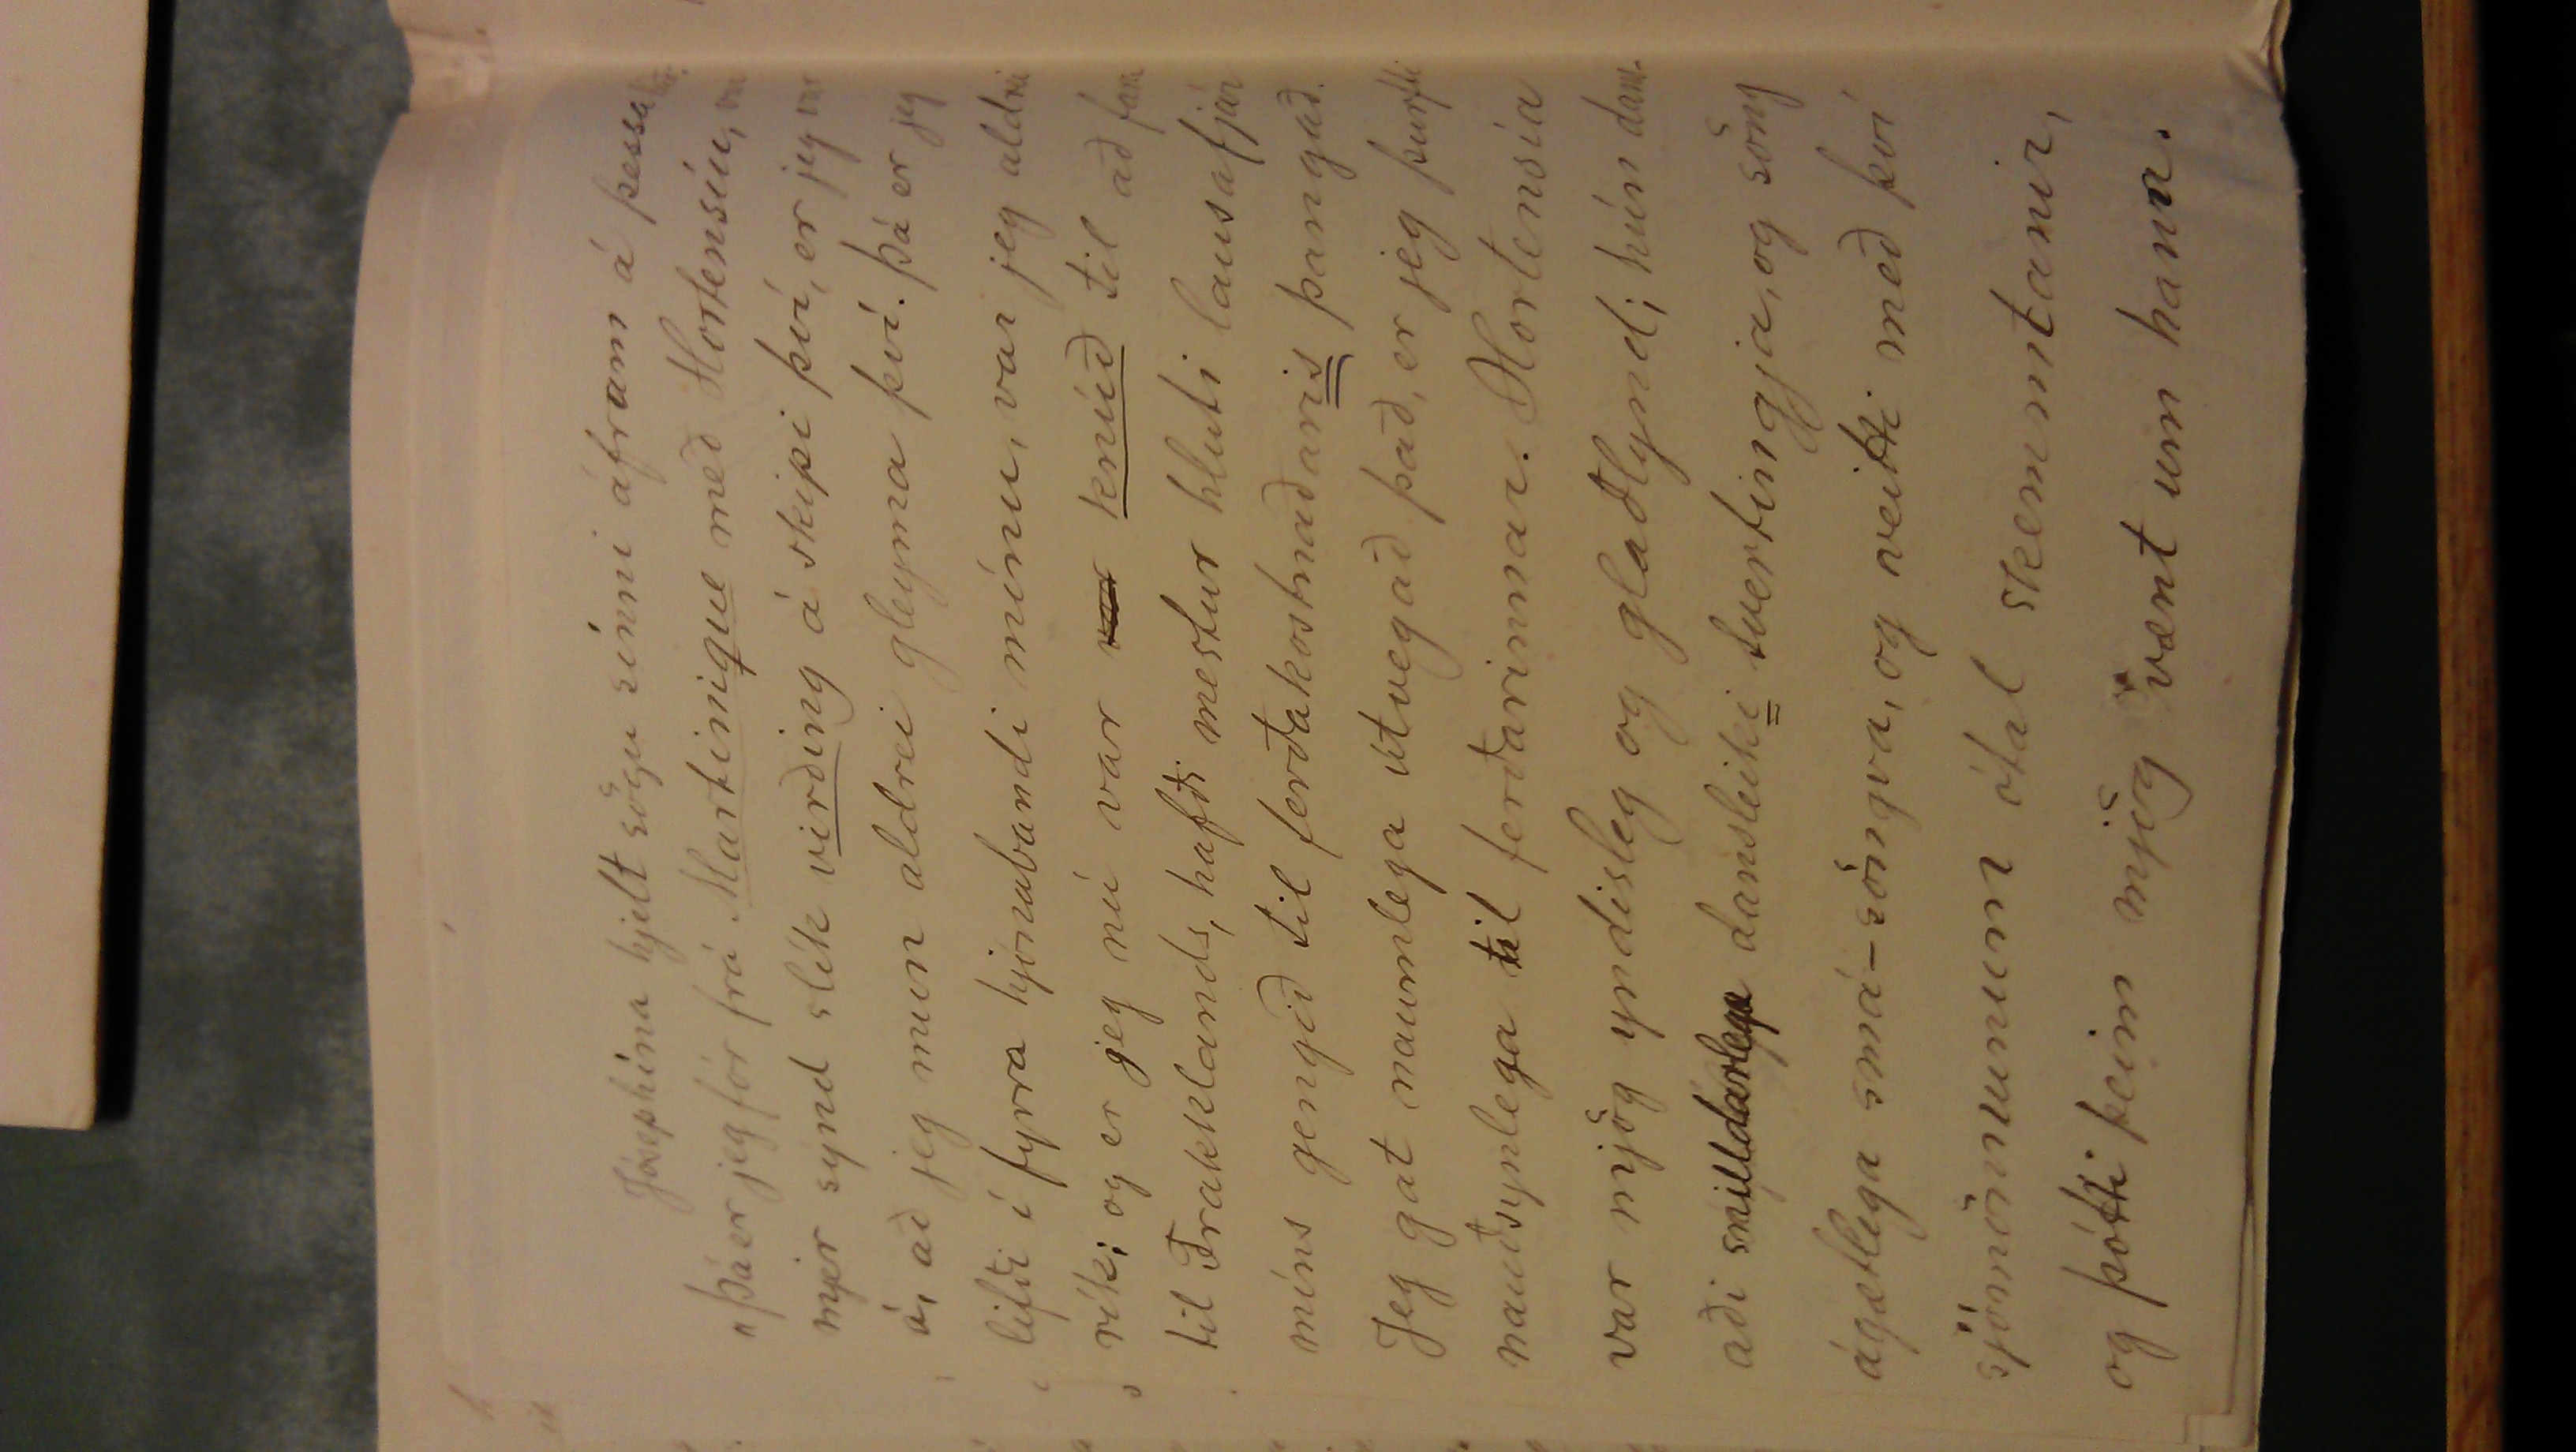 Jósephína hjelt sögu sinni áfram á þessa
„Þá er jeg fór frá Martinique með Hortensíu, var
mjer sýnd slík virðing á skipi því, er jeg var
á, að jeg mun aldrei gleyma því. Þá er jeg
lifði í fyrra hjónabandi mínu, var jeg aldrei
rík; og er jeg nú var knúð til að fara
til Frakklands, hafði mestur hluti lausafjár
míns gengið til ferðakostnaðaris þangað.
Jeg gat naumlega útvegað það, er jeg þurfti
nauðsynlega til ferðarinnar. Hortensía
var mjög yndisleg og glaðlynd; hún dans-
aði snilldarlega dansleiki svertingja, og söng
ágætlega smá-söngva, og veitti með því
sjómönnunum ótal skemmtanir,
og þótti þeim mjög vænt um hana.